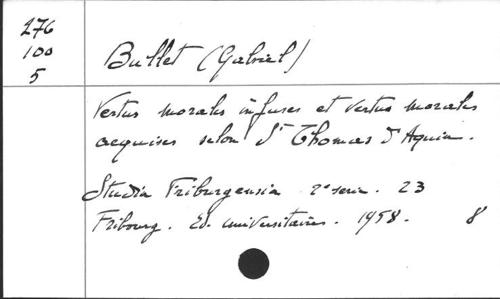 276
100
5
Bullet (Gabriel)
Vertus morales infuses et vertus morales
acquises selon St Thomas d'Aquin.
Studia Friburgensia 2e serie. 23
Fribourg. Ed. universitaires. 1958. 8